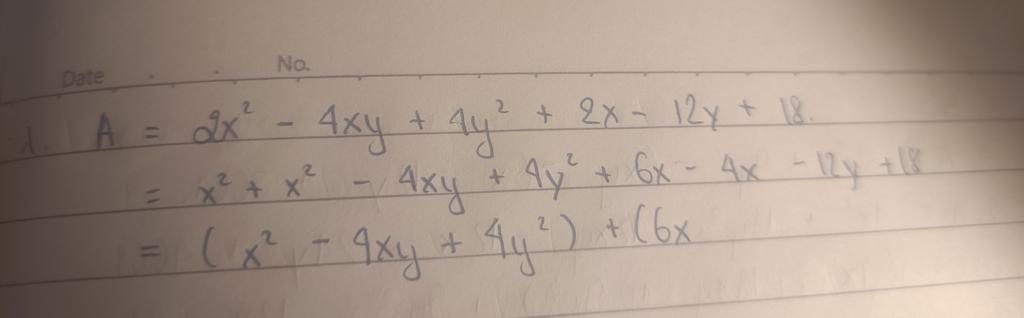 Date No.
1. A = 2x² - 4xy + 4y² + 2x - 12y + 18.
= x² + x² - 4xy + 4y² + 6x - 4x - 12y + 18
= (x² - 4xy + 4y²) + (6x